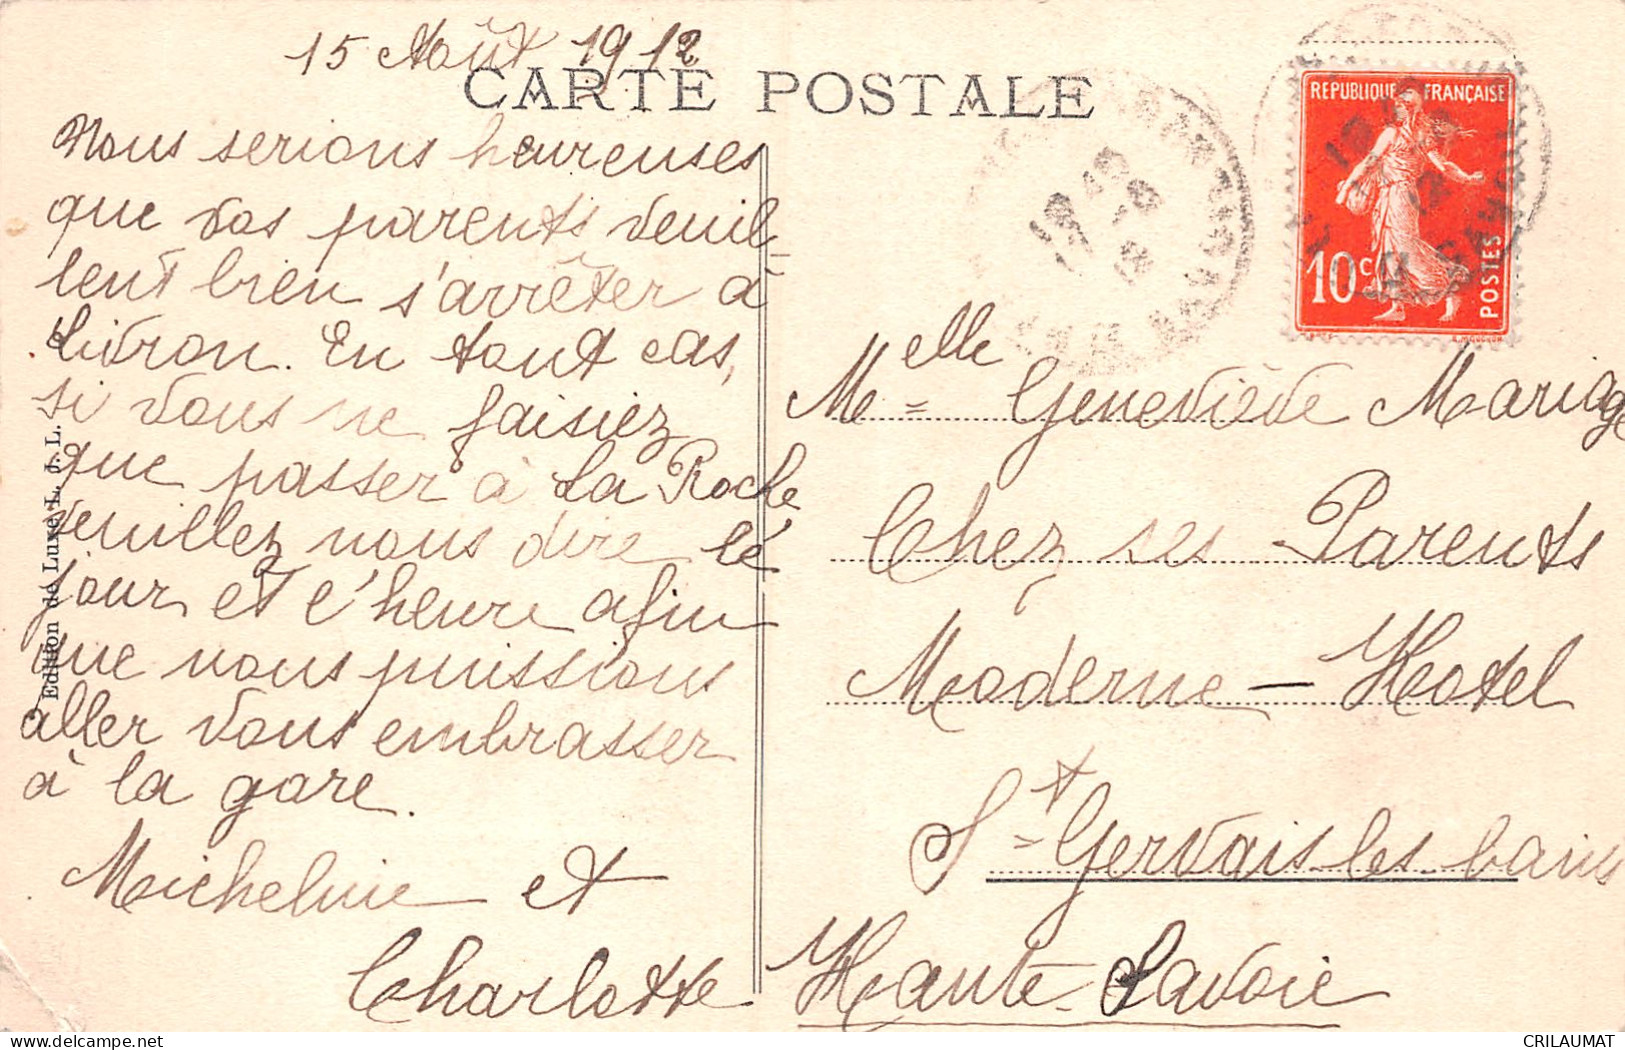 15 Août 1912
CARTE POSTALE
Nous serions heureuses
que vos parents veuil-
lent bien s'arrêter à
Livron. En tout cas,
si vous ne faisiez
que passer à La Roche
veuillez nous dire le
jour et l'heure afin
que nous puissions
aller vous embrasser
à la gare.
Micheline et
Charlotte
Edition de Luxe L. J. L.
REPUBLIQUE FRANÇAISE
10 c
POSTES
Melle Geneviève Mariage
Chez ses Parents
Moderne-Hotel
St Gervais-les-bains
Haute-Savoie
CRILAUMAT